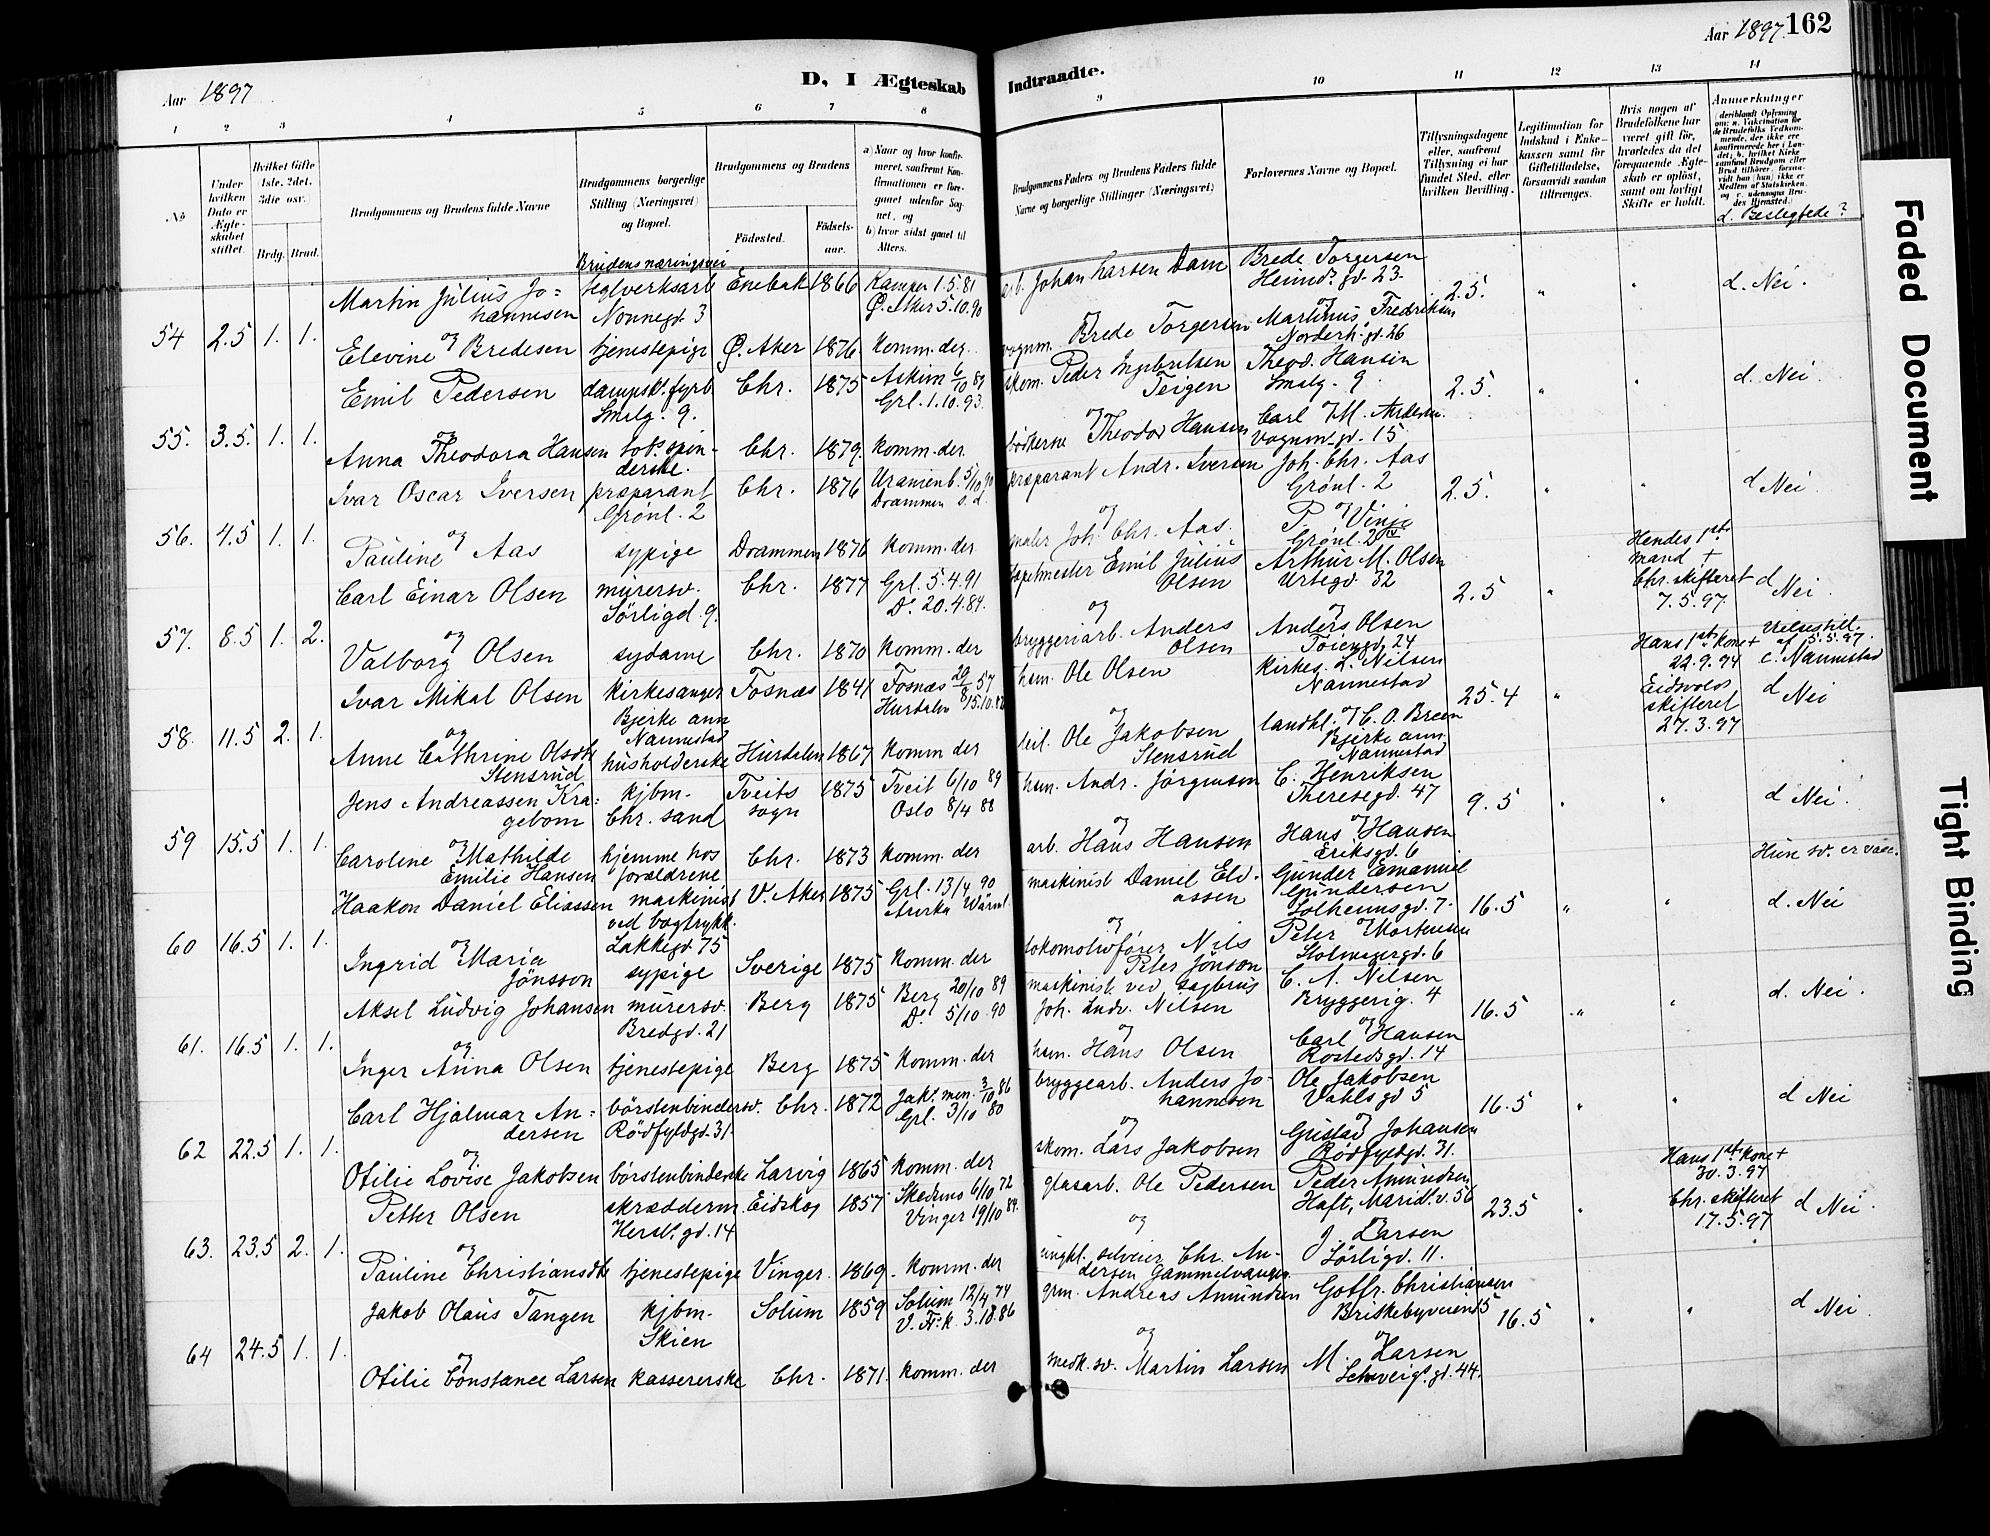 Aar 1897
D, I Ægteskab
Indtraadte.
Aar 1897. 162
1 2 3 4 5 6 7 8
9 10 11 12 13 14
No
Under hvilken Dato er Ægteskabet stiftet.
Hvilket Gifte 1ste, 2det, 3die osv.
Brdg. Brud.
Brudgommens og Brudens fulde Navne
Brudgommens borgerlige Stilling (Næringsvei) og Bopæl.
Brudens næringsvei
Brudgommens og Brudens
Fødested.
Fødselsaar.
a) Naar og hvor konfirmeret, saafremt Konfirmationen er foregaaet udenfor Sognet, og
b) hvor sidst gaaet til Alters.
Brudgommens Faders og Brudens Faders fulde Navne og borgerlige Stillinger (Næringsvei)
Forlovernes Navne og Bopæl.
Tillysningsdagene eller, saafremt Tillysning ei har fundet Sted, efter hvilken Bevilling.
Legitimation for Indskud i Enkekassen samt for Giftetilladelse, forsaavidt saadan tiltrænges.
Hvis nogen af Brudefolkene har været gift før, hvorledes da det foregaaende Ægteskab er opløst, samt om lovligt Skifte er holdt.
Anmerkninger
d. Beslegtede?
54 2.5 1. 1.
Martin Julius Jo=
hannesen
teglverksarb
Nonnegd. 3
Enebak 1866
Kamper 1.5.81
Ø. Aker 5.10.90
arb. Johan Larsen Dam
Brede Torgersen
Heimd. gd. 23.
2.5. " " d. Nei.
og
Elevine Bredesen tjenestepige Ø. Aker 1876 komm. der
vognm. Brede Torgersen
Martinus Fredriksen
Norderh. gd. 26
55. 3.5. 1. 1.
Emil Pedersen
dampsk. fyrb
Smalg. 9.
Chr. 1875
Askim 6/10 89
Grl. 1.10.93.
skom. Peder Ingebretsen
Teigen
Theod. Hansen
Smalg. 9.
2.5. " " d. Nei.
og
Anna Theodora Hansen
tob. spin-
derske.
Chr. 1879. komm. der
bødkersv. Theodor Hansen
Carl M. Andersen.
Vognm. gd. 15
56. 4.5 1. 1.
Ivar Oscar Iversen
præparant
Grønl. 2
Chr. 1876
Uranienb. 5/10 90
Drammen s. d.
præparant Andr. Iversen
Joh. Chr. Aas
Grønl. 2
2.5. " " d Nei.
og
Pauline Aas sypige Drammen 1876 komm. der
maler Joh. Chr. Aas.
P. Vinje
Grønl. 2 IV
57. 8.5 1. 2.
Carl Einar Olsen
murersv.
Sørligd. 9.
Chr. 1877
Grl. 5.4.91
Do. 20.4.84.
tapetmester Emil Julius
Olsen
Arthur M. Olsen
Urtegd. 32
2.5 "
Hendes 1ste
mand +
Chr. skifteret
7.5.97.
d Nei.
og
Valborg Olsen sydame Chr. 1870 komm. der
bryggeriarb. Anders
Olsen
Anders Olsen
Tøiengd. 24
58. 11.5 2. 1.
Ivar Mikal Olsen
kirkesanger
Bjerke ann
Nannestad
Fosnæs 1841
Fosnæs 20/8 57
Hurdalen 15.10.82
hsm. Ole Olsen
kirkes. L. Nilsen
Nannestad
25.4 "
Hans 1ste kone +
22.9.94
Eidsvolds
skifteret
27.3.97
af 15.5.97.
c. Nannestad
d Nei
og
Anne Cathrine Olsdtr
Stensrud
husholderske Hurdalen 1867 komm der
Ole Jakobsen
Stensrud
landhl. C. O. Breen
Bjerke ann.
Nannestad
59 15.5 1. 1.
Jens Andreassen Kra=
gebom
kjbm.
Chr. sand
Tveits
sogn
1875
Tveit 6/10 89
Oslo 8/4 88
hsm. Andr. Jørgensen
C. Henriksen
Theresegd. 47
9.5 " " d Nei.
og
Caroline Mathilde
Emilie Hansen
hjemme hos
forældrene
Chr. 1873 komm. der
arb. Hans Hansen
Hans Hansen
Eriksgd. 6
60 16.5 1. 1.
Haakon Daniel Eliassen
maskinist
ved bogtrykk.
Lakkegd. 75
V. Aker 1875
Grl. 13/4 90
Arvika Wärml.
maskinist Daniel Eli-
assen
Gunder Emanuel
Gundersen
Solheimsgd. 7.
16.5 " "
Hun sv.
d. Nei
og
Ingrid Maria
Jönsson
sypige Sverige 1875 komm. der
lokomotivfører Nils
Peter Jönson
Peter Mortensen
Stolmagergd. 6
61. 16.5 1. 1.
Aksel Ludvig Johansen
murersv.
Bredgd. 21
Berg 1875
Berg 20/10 89
Do. 5/10 90
maskinist ved sagbrug
Joh. Ludv. Nilsen
C. A. Nilsen
Bryggerig. 4
16.5 " " d. Nei.
og
Inger Anna Olsen tjenestepige Berg 1875 komm. der
hsm. Hans Olsen
Carl Hansen
Rostedsgd. 14
62 22.5 1. 1.
Carl Hjalmar An=
dersen
børstenbindersv.
Rødfyldgd. 31.
Chr. 1872
Jak. men. 3/10 86
Grl. 3/10 80
bryggearb. Anders Jo-
hannesen
Ole Jakobsen
Vahlsgd 5
16.5 " " d Nei
og
Otilie Lovise Jakobsen børstenbinderske Larvig 1865 komm. der
skom. Lars Jakobsen
Gustav Johansen
Rødfyldgd. 31.
63. 23.5 2. 1.
Petter Olsen
skrædderm.
Herslb. gd. 14
Eidskog 1857
Skedsmo 6/10 72
Vinger 19/10 84.
glasarb. Ole Pedersen
Peder Amundsen
Haft, Marid. v. 56
23.5 "
Hans 1ste kone +
30.3.97
Chr. skifteret
17.5.97
d Nei.
og
Pauline Christiansdtr tjenestepige Vinger. 1869. komm. der
ungkl. selveier Chr. An-
dersen Gammelvangen
J. Larsen
Sørligd. 11.
64 24.5 1. 1.
Jakob Olaus Tangen
kjbm.
Skien
Solum 1859
Solum 12/4 74
V. Fr. k. 3.10.86
grm. Andreas Amundsen
Gotfr. Christiansen
Briskebyveien 5
16.5 " " d Nei
og
Otilie Constance Larsen kassererske Chr. 1871. komm. der
medk. sv. Martin Larsen
M. Larsen
Schweig. gd. 44.
Faded Document
Tight Binding